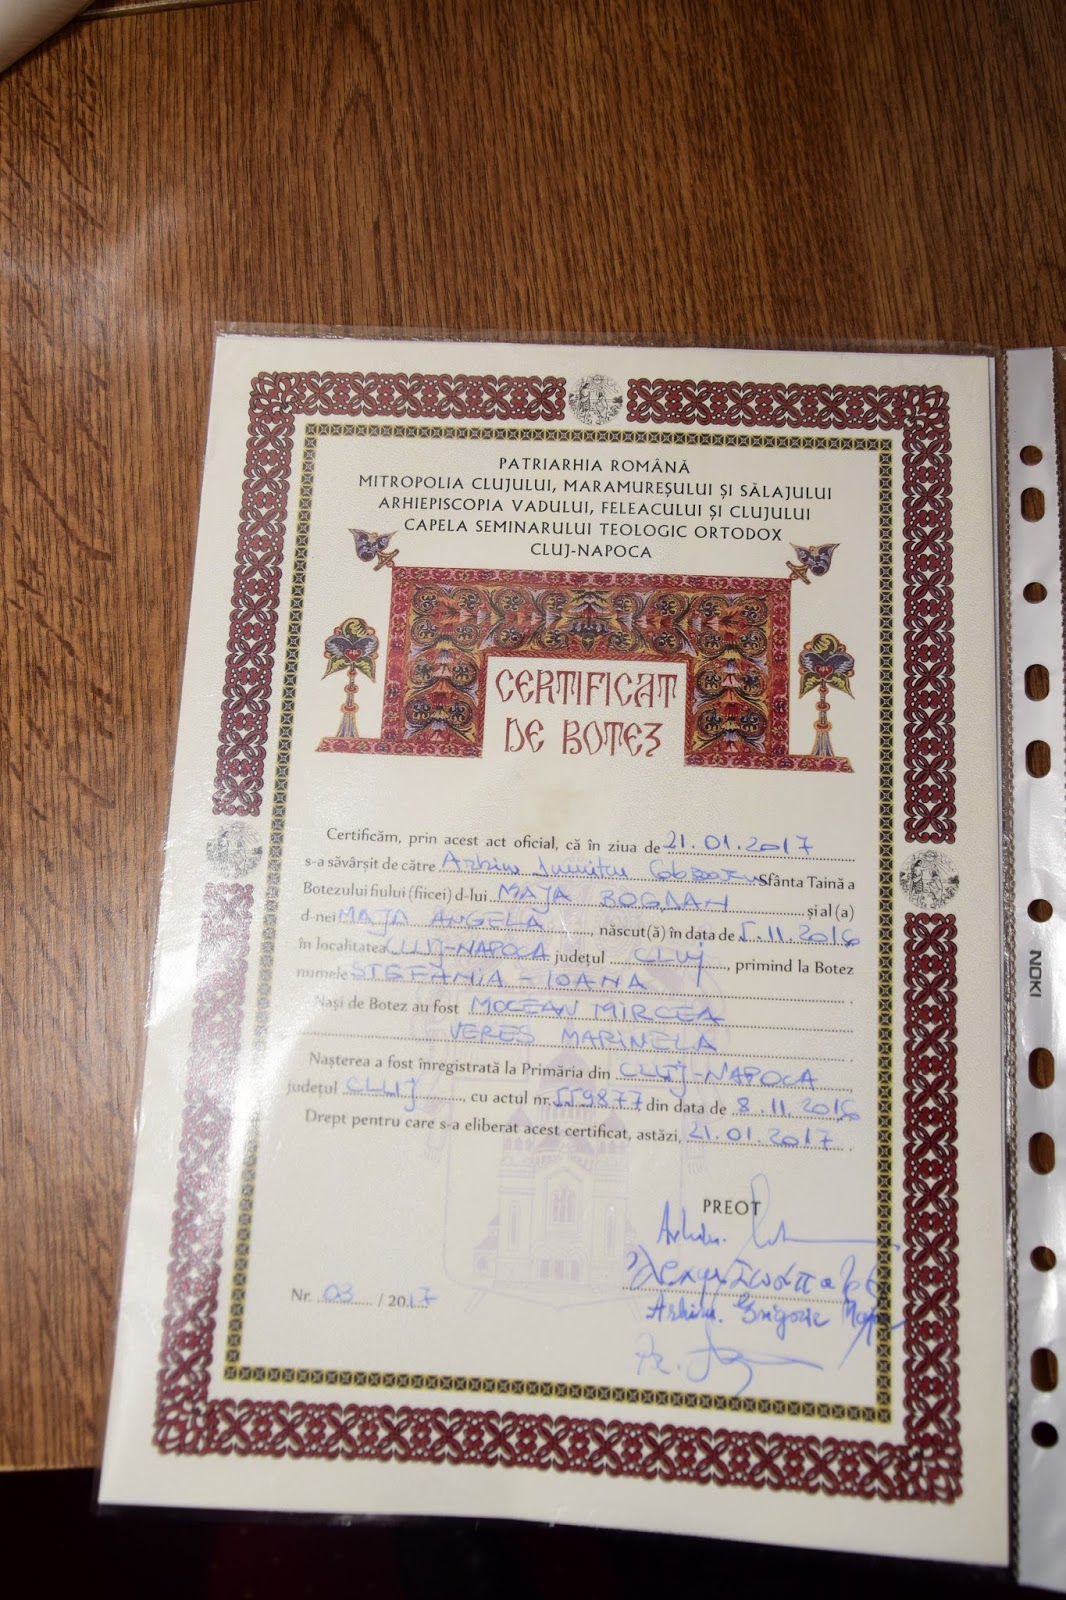 PATRIARHIA ROMÂNĂ
MITROPOLIA CLUJULUI, MARAMUREȘULUI ȘI SĂLAJULUI
ARHIEPISCOPIA VADULUI, FELEACULUI ȘI CLUJULUI
CAPELA SEMINARULUI TEOLOGIC ORTODOX
CLUJ-NAPOCA
CERTIFICAT
DE BOTEZ
Certificăm, prin acest act oficial, că în ziua de 21.01.2017
s-a săvârșit de către Arhim Dumitru Sfânta Taină a
Botezului fiului (fiicei) d-lui MAJA BOGDAN și al (a)
d-nei MAJA ANGELA, născut(ă) în data de 5.11.2016
în localitatea CLUJ-NAPOCA județul CLUJ, primind la Botez
numele STEFANIA - IOANA.
Nași de Botez au fost MOCEAN MIRCEA
VERES MARINELA.
Nașterea a fost înregistrată la Primăria din CLUJ-NAPOCA
județul CLUJ, cu actul nr. 559877 din data de 8.11.2016
Drept pentru care s-a eliberat acest certificat, astăzi, 21.01.2017.
PREOT
Arhim.
Arhim. Grigorie
Pr.
Nr. 03 / 2017
NOKI